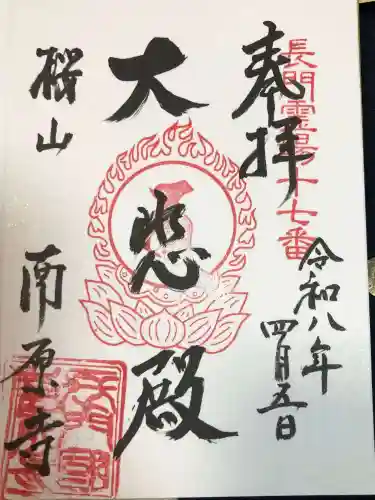 奉拝
長門霊場十七番
令和八年
四月五日
大悲殿
桜山
南原寺